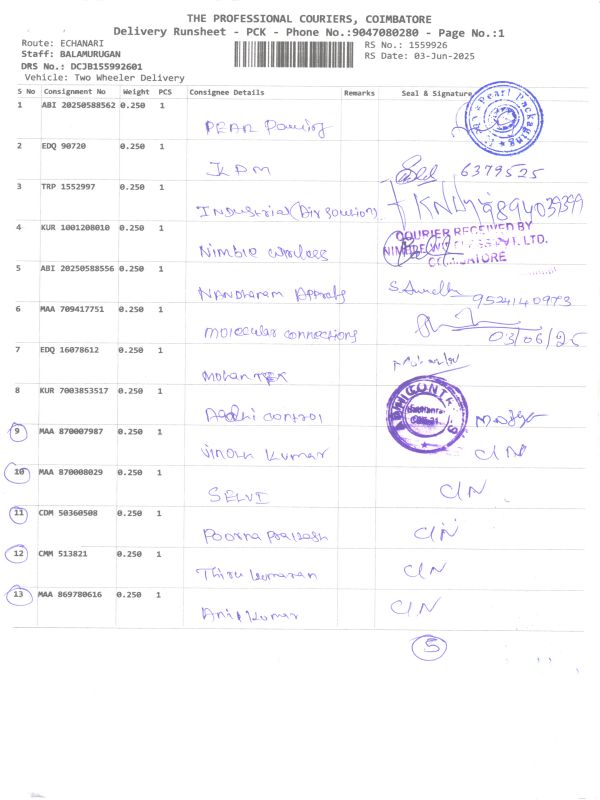 THE PROFESSIONAL COURIERS, COIMBATORE
Delivery Runsheet - PCK - Phone No.:9047080280 - Page No.:1
Route: ECHANARI
RS No.: 1559926
Staff: BALAMURUGAN
RS Date: 03-Jun-2025
DRS No.: DCJB155992601
Vehicle: Two Wheeler Delivery
S No Consignment No Weight PCS Consignee Details Remarks Seal & Signature
1 ABI 20250588562 0.250 1
PEAR
Pearl Packaging
2 EDQ 90720 0.250 1
KPM 6379525
3 TRP 1552997 0.250 1
Industrial (Air Solution) 9894039399
4 KUR 1001208010 0.250 1
COURIER RECEIVED BY
Nimble wireless
COIMBATORE
5 ABI 20250588556 0.250 1
Nandharam 9524140973
6 MAA 709417751 0.250 1
molecular connections 03/06/25
7 EDQ 16078612 0.250 1
Mohan TEX
8 KUR 7003853517 0.250 1
Aadhi control
9 MAA 870007987 0.250 1
Vinoth Kumar C/N
10 MAA 870008029 0.250 1
SELVI C/N
11 CDM 50360508 0.250 1
Poorna Prakash C/N
12 CMM 513821 0.250 1
Thiru kumaran C/N
13 MAA 869780616 0.250 1
Anil Kumar C/N
5